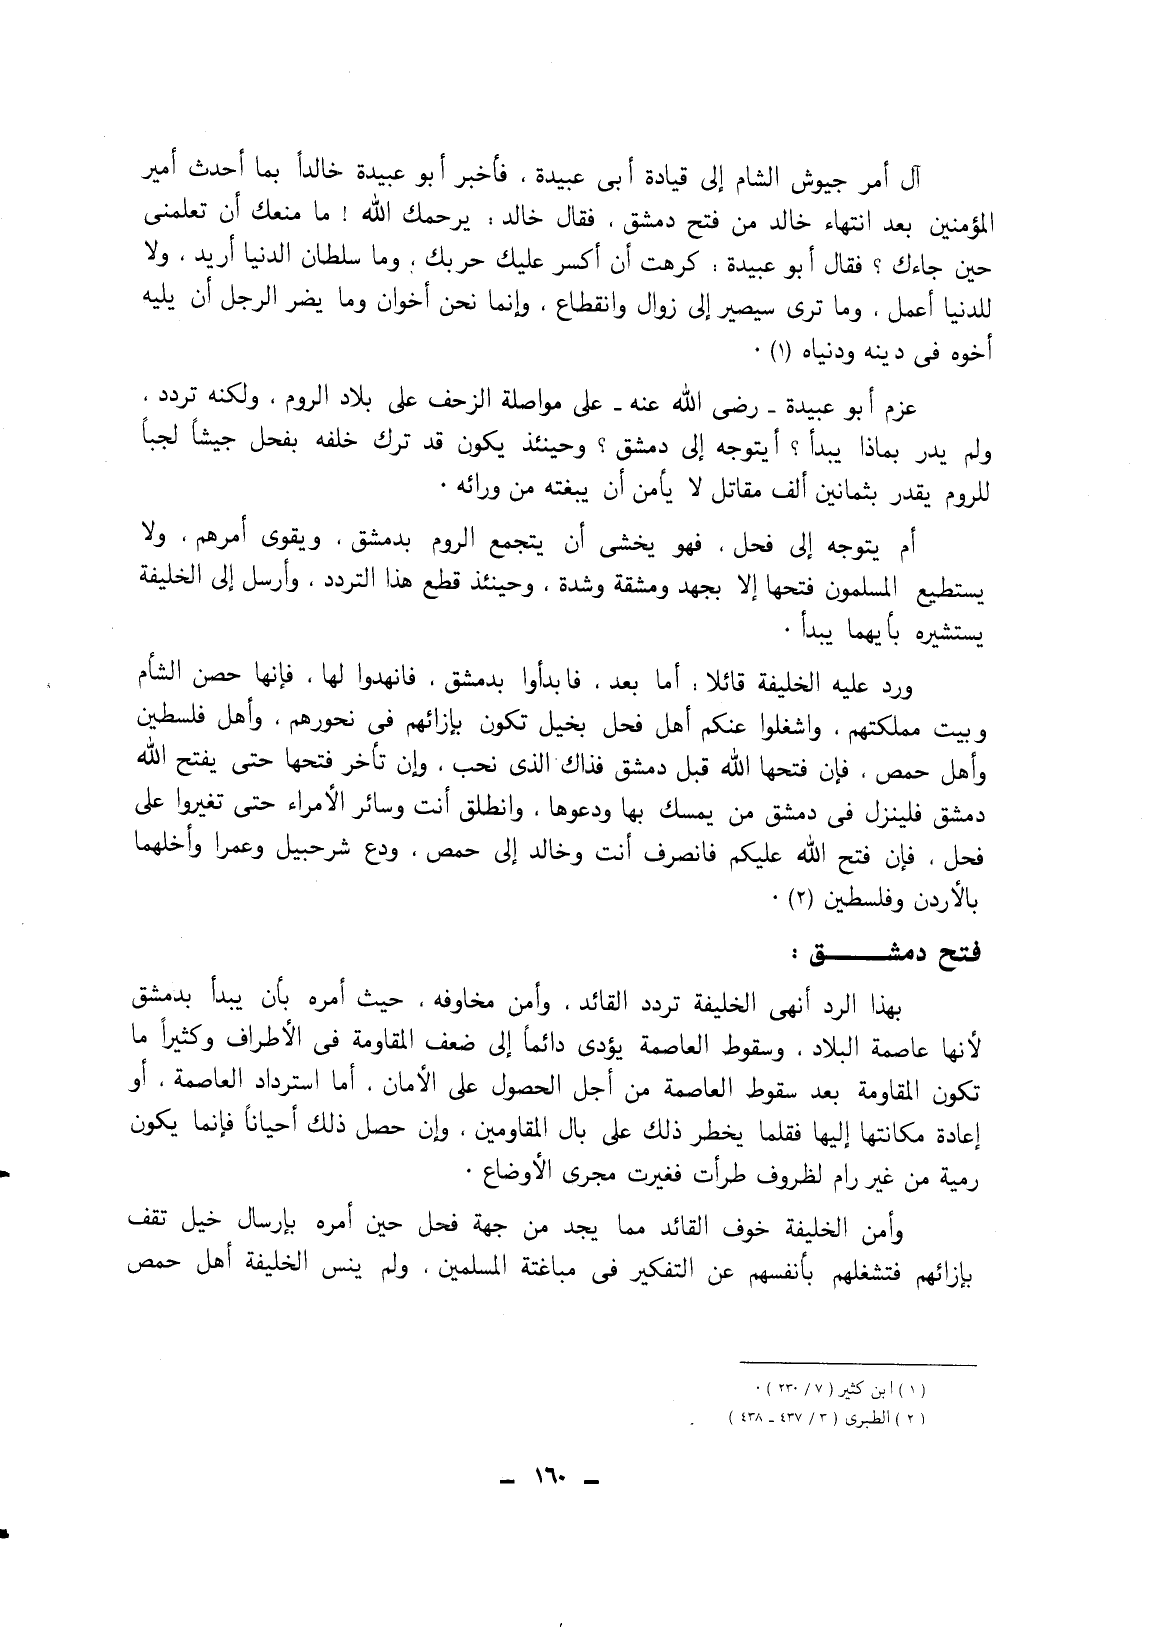 آل أمر جيوش الشام إلى قيادة أبى عبيدة ، فأخبر أبو عبيدة خالداً بما أحدث أمير
المؤمنين بعد انتهاء خالد من فتح دمشق ، فقال خالد : يرحمك الله ! ما منعك أن تعلمنى
حين جاءك ؟ فقال أبو عبيدة : كرهت أن أكسر عليك حربك ، وما سلطان الدنيا أريد ، ولا
للدنيا أعمل ، وما ترى سيصير إلى زوال وانقطاع ، وإنما نحن أخوان وما يضر الرجل أن يليه
أخوه فى دينه ودنياه (١) ٠
عزم أبو عبيدة ـ رضى الله عنه ـ على مواصلة الزحف على بلاد الروم ، ولكنه تردد ،
ولم يدر بماذا يبدأ ؟ أيتوجه إلى دمشق ؟ وحينئذ يكون قد ترك خلفه بفحل جيشاً لجباً
للروم يقدر بثمانين ألف مقاتل لا يأمن أن يبغته من ورائه ٠
أم يتوجه إلى فحل ، فهو يخشى أن يتجمع الروم بدمشق ، ويقوى أمرهم ، ولا
يستطيع المسلمون فتحها إلا بجهد ومشقة وشدة ، وحينئذ قطع هذا التردد ، وأرسل إلى الخليفة
يستشيره بأيهما يبدأ ٠
ورد عليه الخليفة قائلا : أما بعد ، فابدأوا بدمشق ، فانهدوا لها ، فإنها حصن الشأم
وبيت مملكتهم ، واشغلوا عنكم أهل فحل بخيل تكون بإزائهم فى نحورهم ، وأهل فلسطين
وأهل حمص ، فإن فتحها الله قبل دمشق فذاك الذى نحب ، وإن تأخر فتحها حتى يفتح الله
دمشق فلينزل فى دمشق من يمسك بها ودعوها ، وانطلق أنت وسائر الأمراء حتى تغيروا على
فحل ، فإن فتح الله عليكم فانصرف أنت وخالد إلى حمص ، ودع شرحبيل وعمرا وأخلهما
بالأردن وفلسطين (٢) ٠
فتح دمشـــــــق :
بهذا الرد أنهى الخليفة تردد القائد ، وأمن مخاوفه ، حيث أمره بأن يبدأ بدمشق
لأنها عاصمة البلاد ، وسقوط العاصمة يؤدى دائماً إلى ضعف المقاومة فى الأطراف وكثيراً ما
تكون المقاومة بعد سقوط العاصمة من أجل الحصول على الأمان ، أما استرداد العاصمة ، أو
إعادة مكانتها إليها فقلما يخطر ذلك على بال المقاومين ، وإن حصل ذلك أحياناً فإنما يكون
رمية من غير رام لظروف طرأت فغيرت مجرى الأوضاع ٠
وأمن الخليفة خوف القائد مما يجد من جهة فحل حين أمره بإرسال خيل تقف
بإزائهم فتشغلهم بأنفسهم عن التفكير فى مباغتة المسلمين ، ولم ينس الخليفة أهل حمص
(١) ابن كثير (٧/ ٢٣٠) ٠
(٢) الطبرى (٣/ ٤٣٧ ـ ٤٣٨)
ـ ١٦٠ ـ